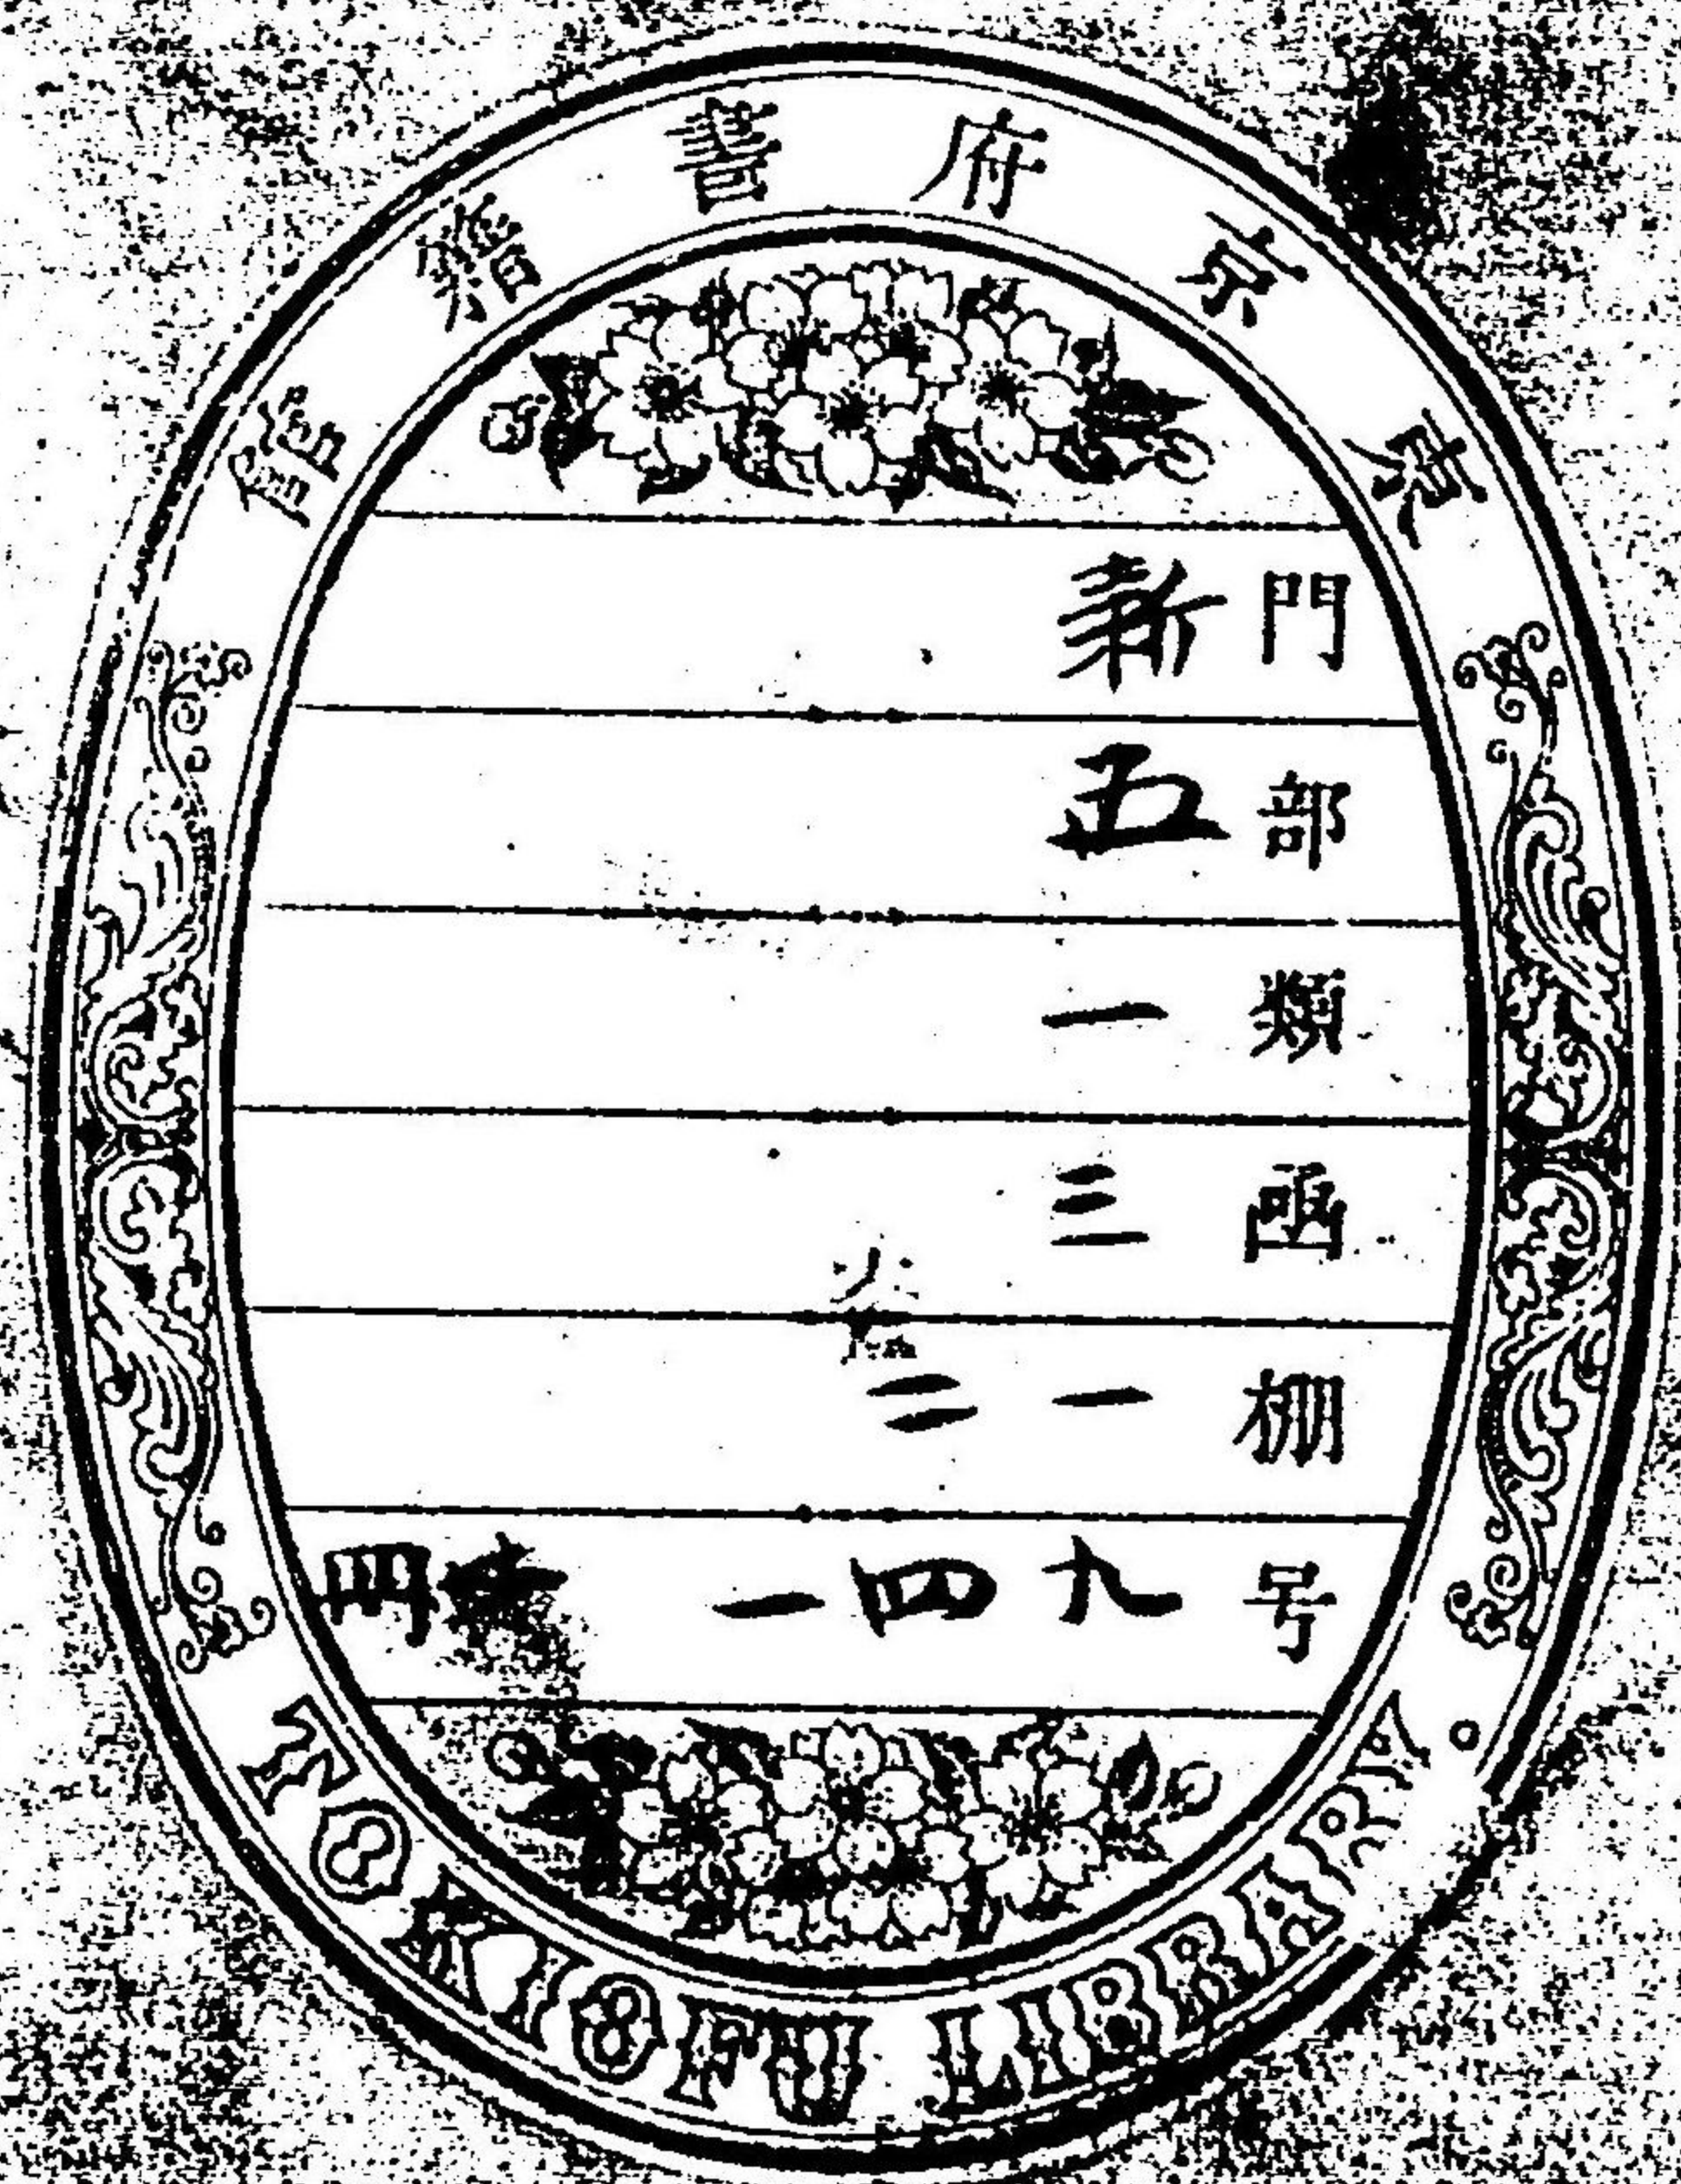 東京府書籍館
門 新
部 五
類 一
函 三
棚 一二
号 九四一
TOKIOFU LIBRARY.